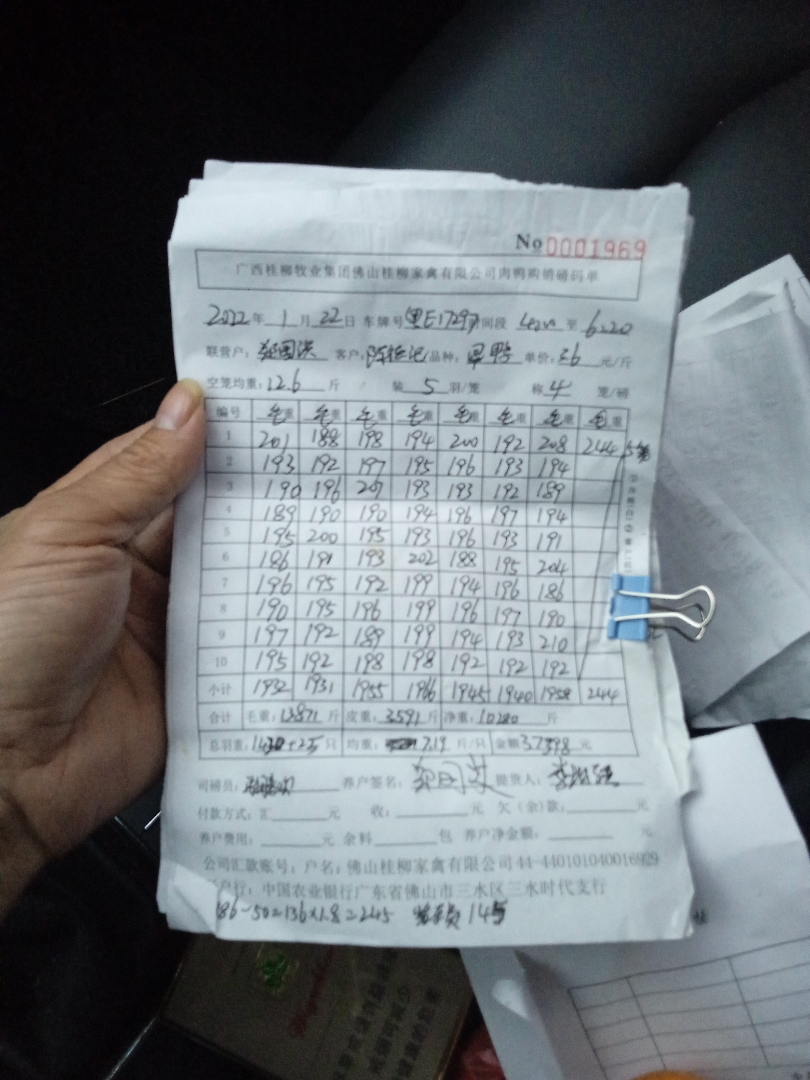 No 0001969
广西桂柳牧业集团佛山桂柳家禽有限公司肉鸭购销磅码单
2022年 1月 22日 车牌号 粤E17297 时间段 至 6:20
联营户: 客户: 品种: 单价: 3.6 元/斤
空笼均重: 12.6 斤 装 5 羽/笼 称 4 笼/磅
编号 毛重 毛重 毛重 毛重 毛重 毛重 毛重 毛重
1 201 188 198 194 200 192 208 244 5笼
2 193 192 197 195 196 193 194
3 190 196 207 193 193 192 189
4 189 190 190 194 196 197 194
5 195 200 195 193 196 193 191
6 186 191 193 202 188 195 204
7 196 195 192 199 194 196 186
8 190 195 196 199 196 197 190
9 197 192 189 199 194 193 210
10 195 192 198 198 192 192 192
小计 1932 1931 1955 1966 1945 1940 1958 244
合计 毛重: 13871 斤 皮重: 3591 斤 净重: 10280 斤
总羽重: 只 均重: 7.19 斤/只 金额: 元
司磅员: 养户签名: 提货人:
付款方式: 汇 元 收: 元 欠(余)款: 元
养户费用: 元 余料 包 养户净金额: 元
公司汇款账号: 户名: 佛山桂柳家禽有限公司 44-440101040016929
户行: 中国农业银行广东省佛山市三水区三水时代支行
186-50=136×1.8=245